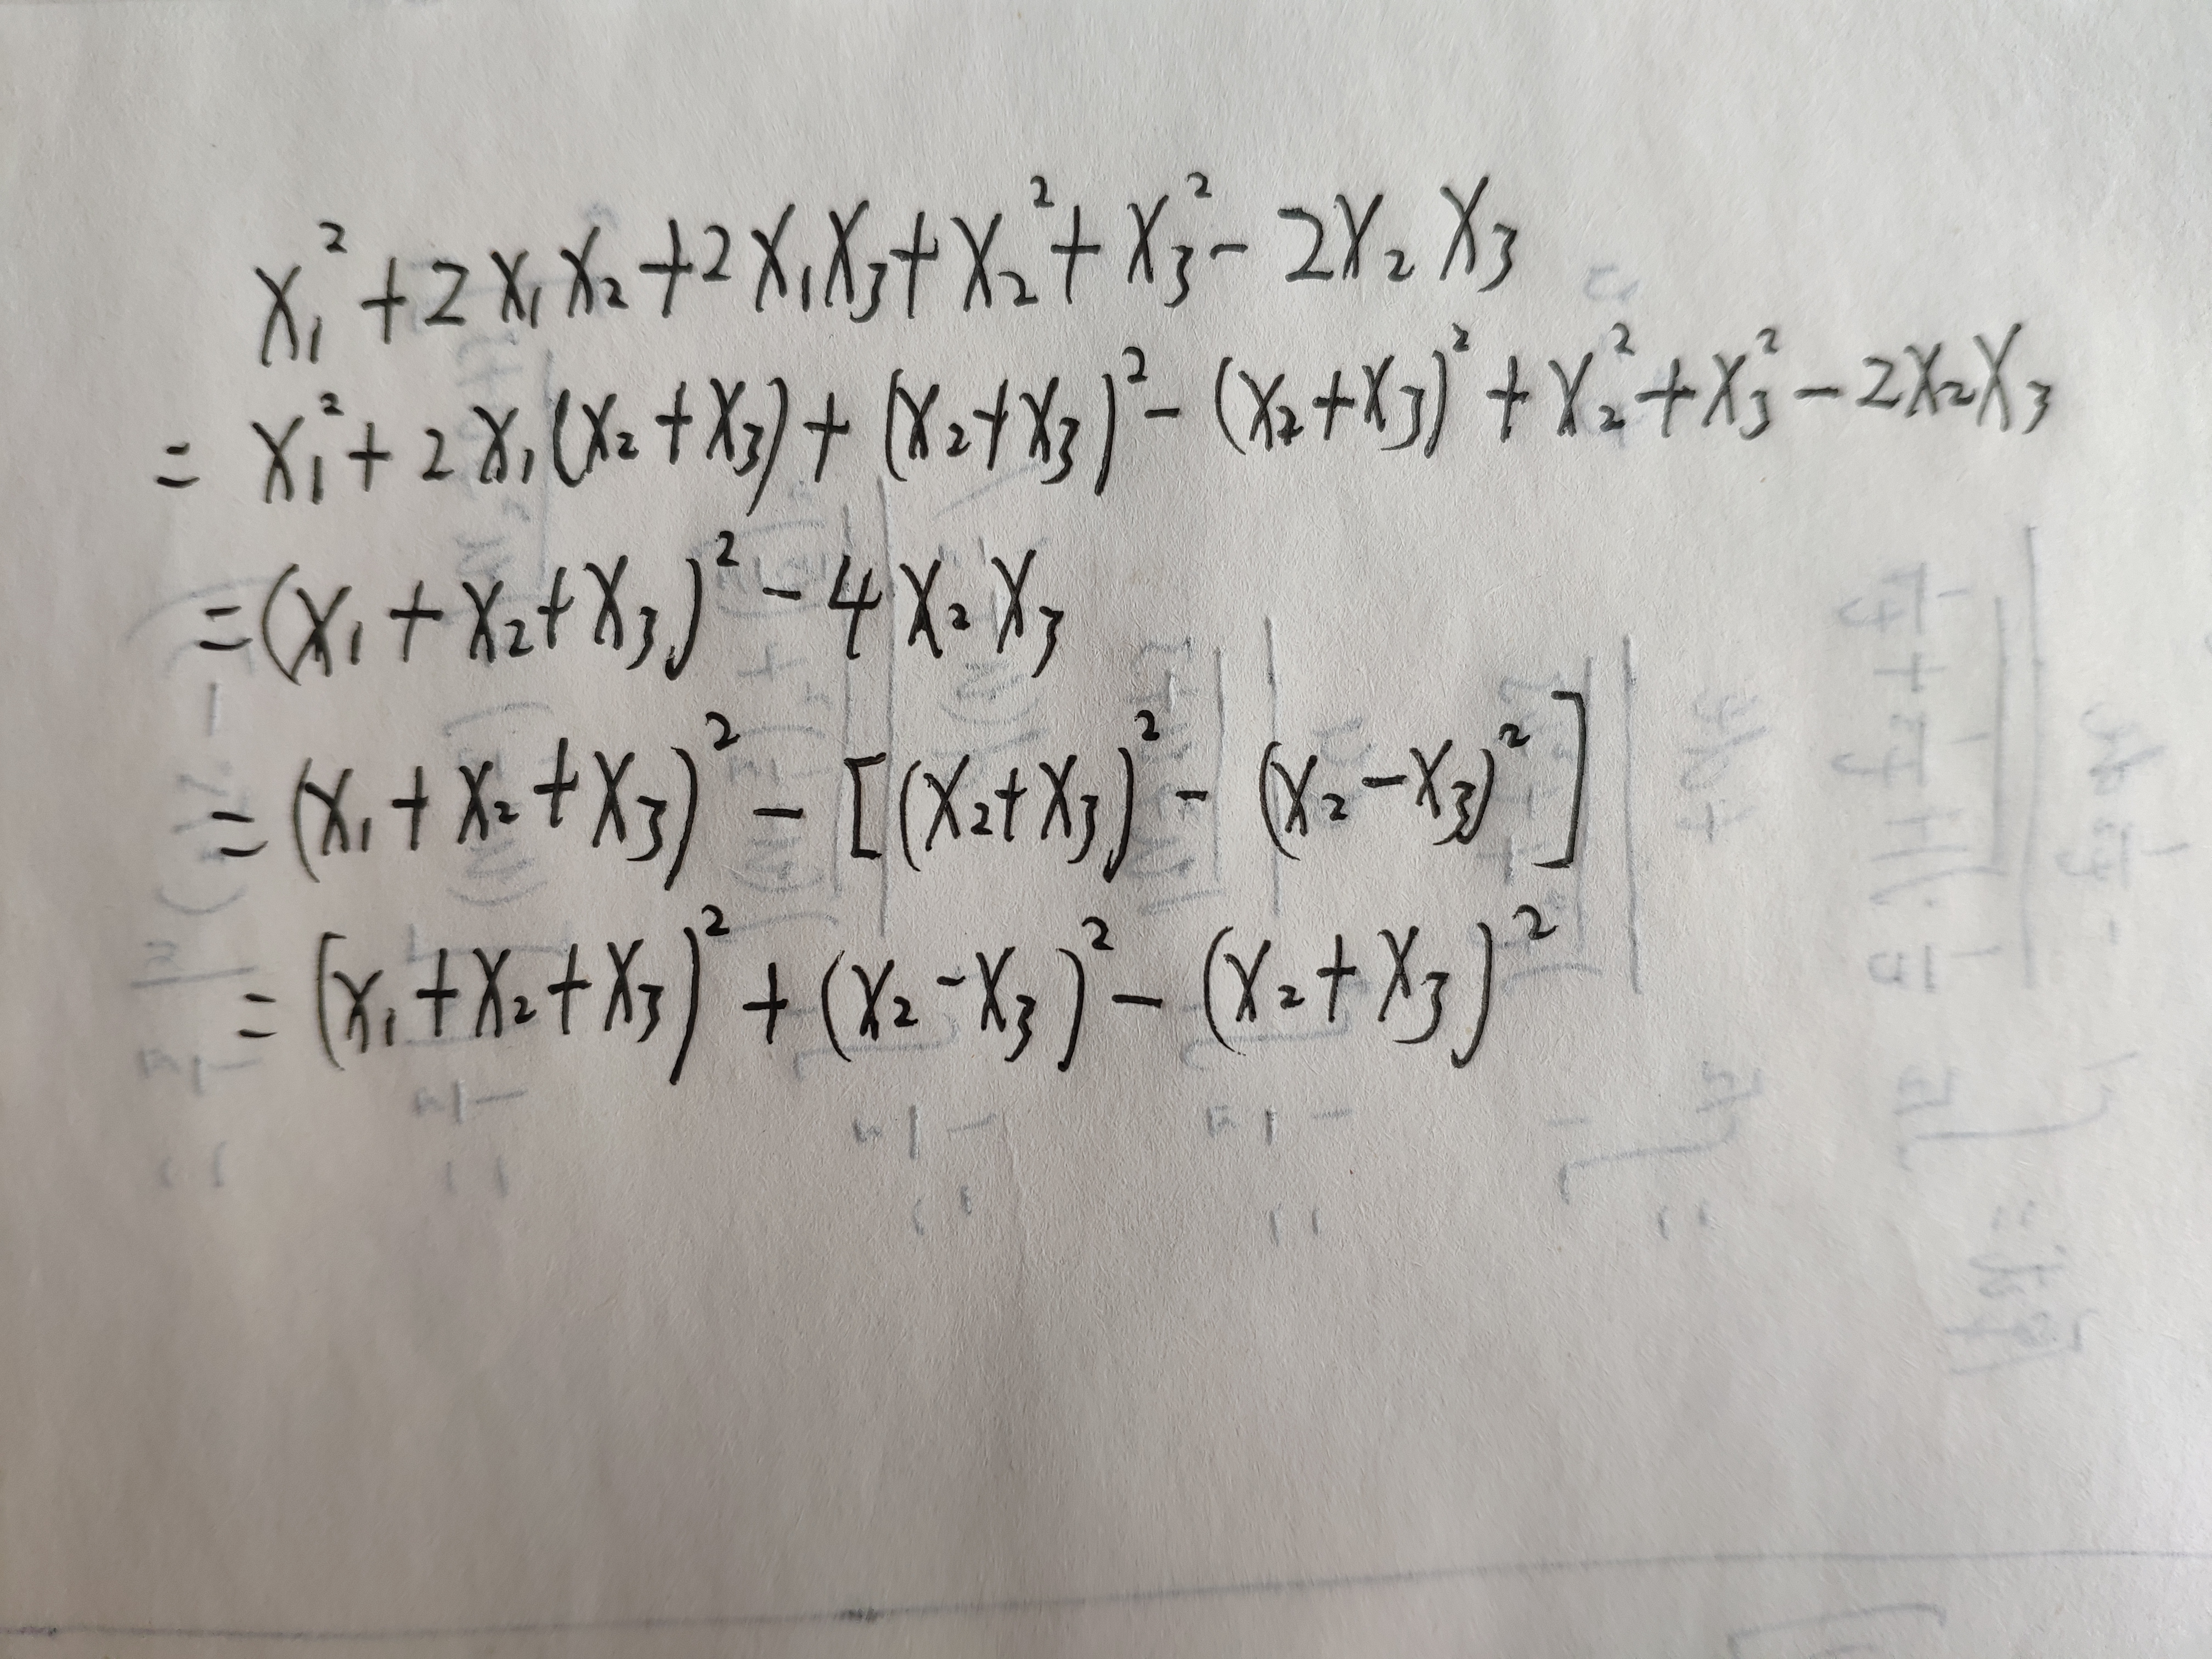 x₁² + 2x₁x₂ + 2x₁x₃ + x₂² + x₃² - 2x₂x₃
= x₁² + 2x₁(x₂ + x₃) + (x₂ + x₃)² - (x₂ + x₃)² + x₂² + x₃² - 2x₂x₃
= (x₁ + x₂ + x₃)² - 4x₂x₃
= (x₁ + x₂ + x₃)² - [(x₂ + x₃)² - (x₂ - x₃)²]
= (x₁ + x₂ + x₃)² + (x₂ - x₃)² - (x₂ + x₃)²